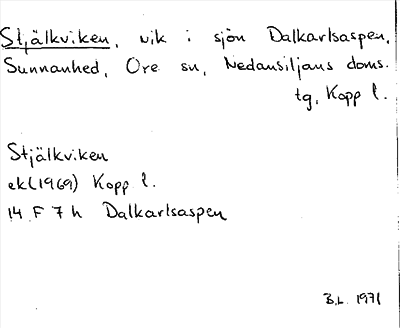 Stjälkviken, vik i sjön Dalkarlsaspen,
Sunnanhed, Ore sn, Nedansiljans doms.
tg, Kopp l.
Stjälkviken
ek(1969) Kopp l.
14 F 7 h Dalkarlsaspen
B.L. 1971